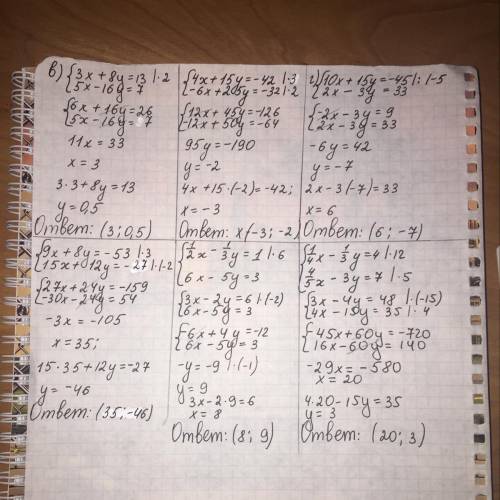 в) {3x + 8y = 13 |·2
5x - 16y = 7
{6x + 16y = 26
5x - 16y = 7
11x = 33
x = 3
3·3 + 8y = 13
y = 0,5
Ответ: (3; 0,5)
{4x + 15y = -42 |·3
-6x + 25y = -32 |·2
{12x + 45y = -126
-12x + 50y = -64
95y = -190
y = -2
4x + 15·(-2) = -42;
x = -3
Ответ: x(-3; -2)
г) {10x + 15y = -45 |: (-5
2x - 3y = 33
{-2x - 3y = 9
2x - 3y = 33
-6y = 42
y = -7
2x - 3(-7) = 33
x = 6
Ответ: (6; -7)
{9x + 8y = -53 |·3
15x + 12y = -27 |·(-2)
{27x + 24y = -159
-30x - 24y = 54
-3x = -105
x = 35;
15·35 + 12y = -27
y = -46
Ответ: (35; -46)
{1/2x - 1/3y = 1 |·6
6x - 5y = 3
{3x - 2y = 6 |·(-2)
6x - 5y = 3
{-6x + 4y = -12
6x - 5y = 3
-y = -9 |·(-1)
y = 9
3x - 2·9 = 6
x = 8
Ответ: (8; 9)
{1/4x - 1/3y = 4 |·12
4/5x - 3y = 7 |·5
{3x - 4y = 48 |·(-15)
4x - 15y = 35 |·4
{-45x + 60y = -720
16x - 60y = 140
-29x = -580
x = 20
4·20 - 15y = 35
y = 3
Ответ: (20; 3)